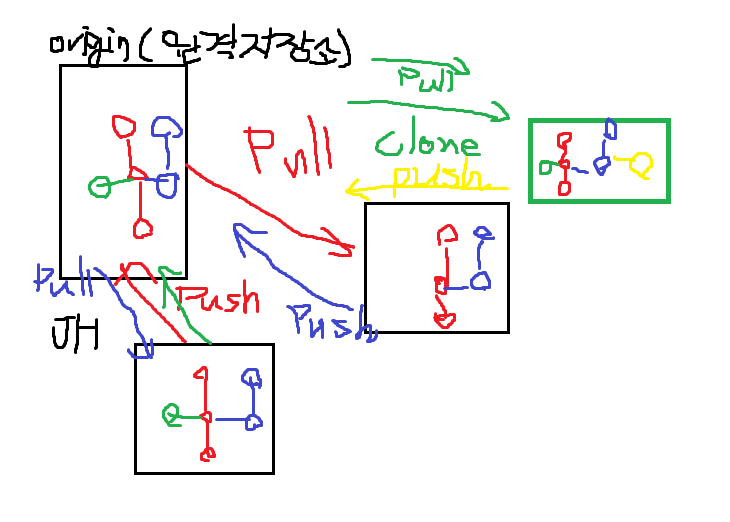 origin(원격저장소)
pull
clone
Pull
push
Pull
Push
Push
JH